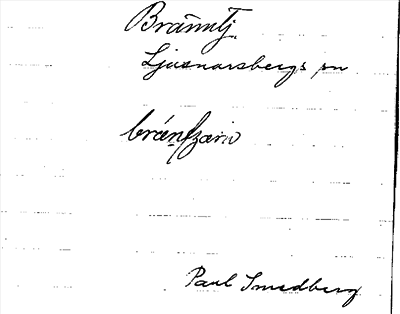 Bränntj.
Ljusnarsbergs sn
Paul Smedberg